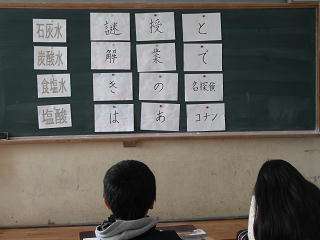 石灰水
炭酸水
食塩水
塩酸
謎 授 と
解 業 て
き の 名探偵
は あ コナン